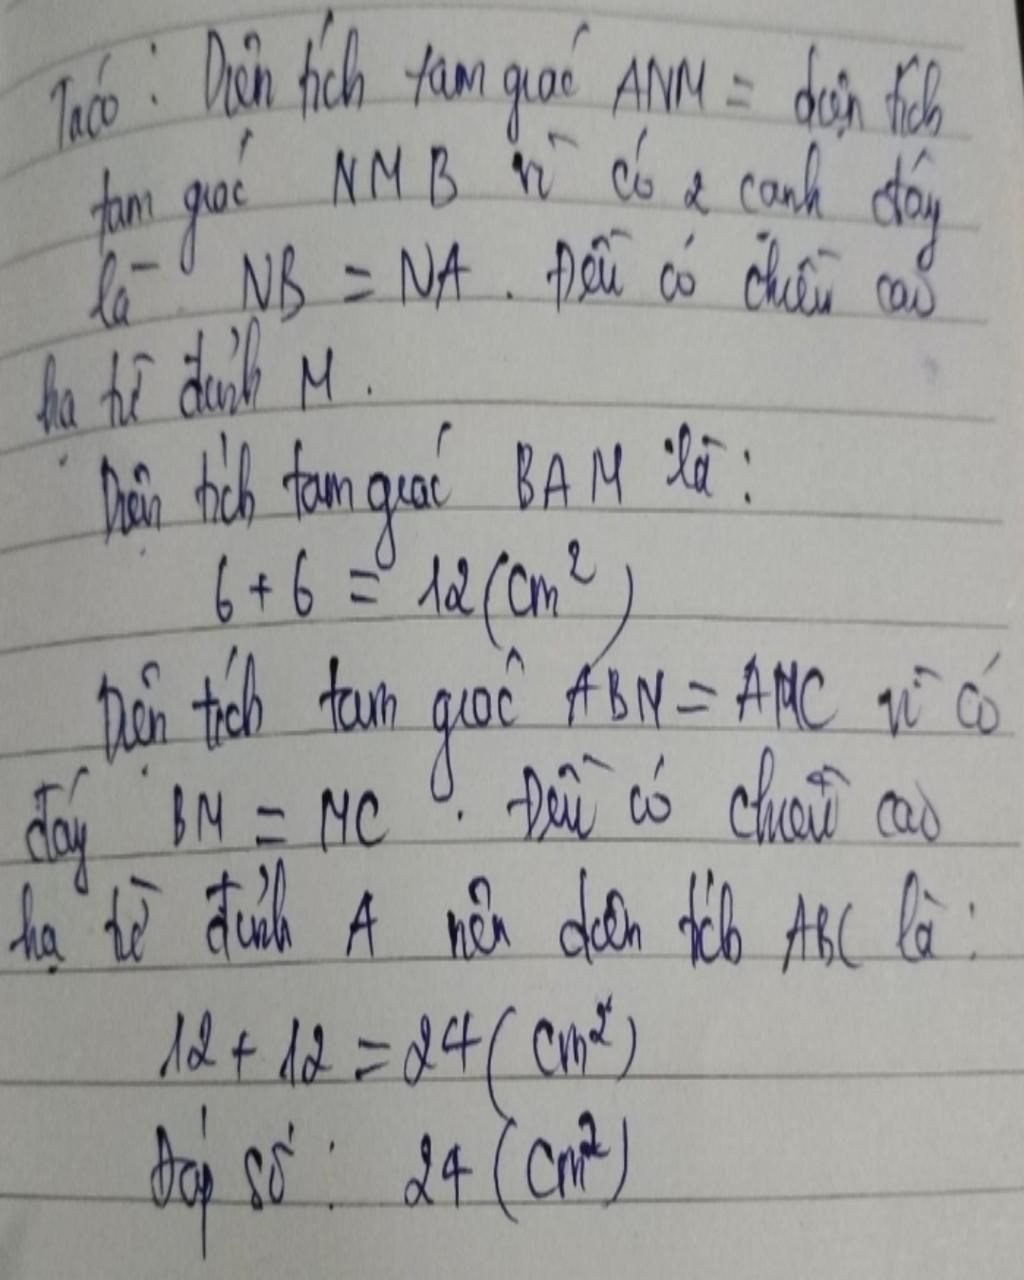 Ta có: Diện tích tam giác ANM = diện tích
tam giác NMB vì có 2 cạnh đáy
là NB = NA. Đều có chiều cao
hạ từ đỉnh M.
Diện tích tam giác BAM là:
6 + 6 = 12 (cm²)
Diện tích tam giác ABM = AMC vì có
đáy BM = MC. Đều có chiều cao
hạ từ đỉnh A nên diện tích ABC là:
12 + 12 = 24 (cm²)
Đáp số: 24 (cm²)